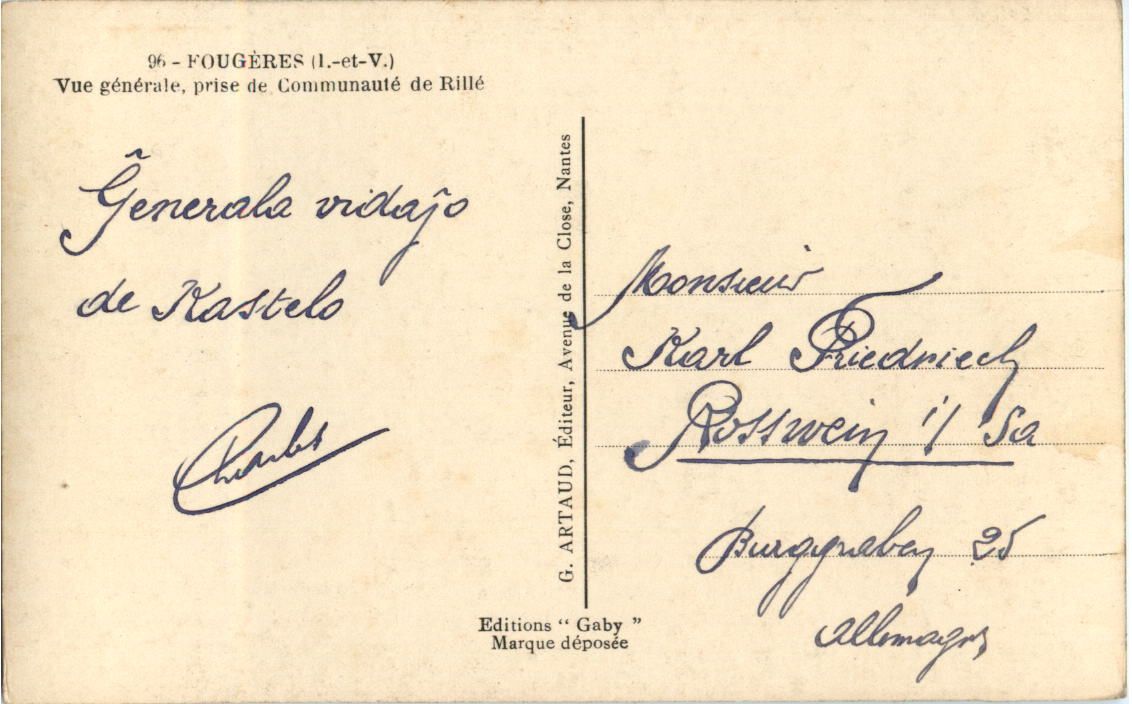 96 - FOUGÈRES (I.-et-V.)
Vue générale, prise de Communauté de Rillé
Ĝenerala vidaĵo
de Kastelo
Charles
G. ARTAUD, Éditeur, Avenue de la Close, Nantes
Editions “ Gaby ”
Marque déposée
Monsieur
Karl Friedriech
Rosswein i/ Sa
Burggraben 25
Allemagne